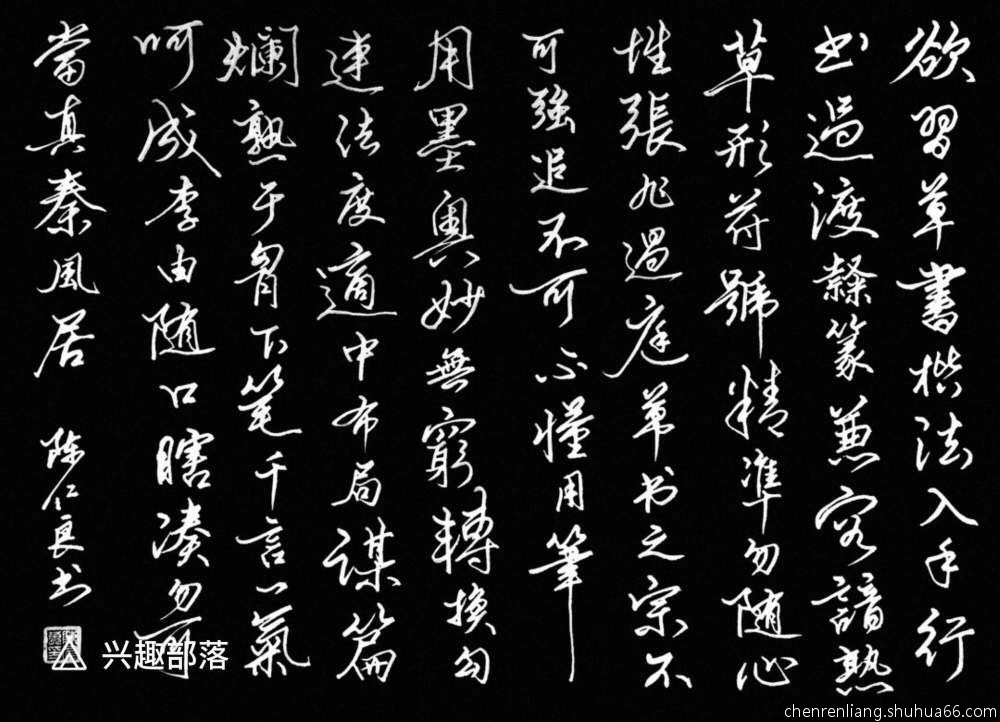 欲習草書楷法入手行
书過渡隸篆兼容諳熟
草形符號精準勿随心
性張旭過庭草书之宗不
可强追不可不懂用筆
用墨奥妙無窮轉換勾
連法度適中布局謀篇
爛熟于胷下笔千言一氣
呵成李由随口瞎凑勿可
當真秦風居
陈仁良书
兴趣部落
chenrenliang.shuhua66.com